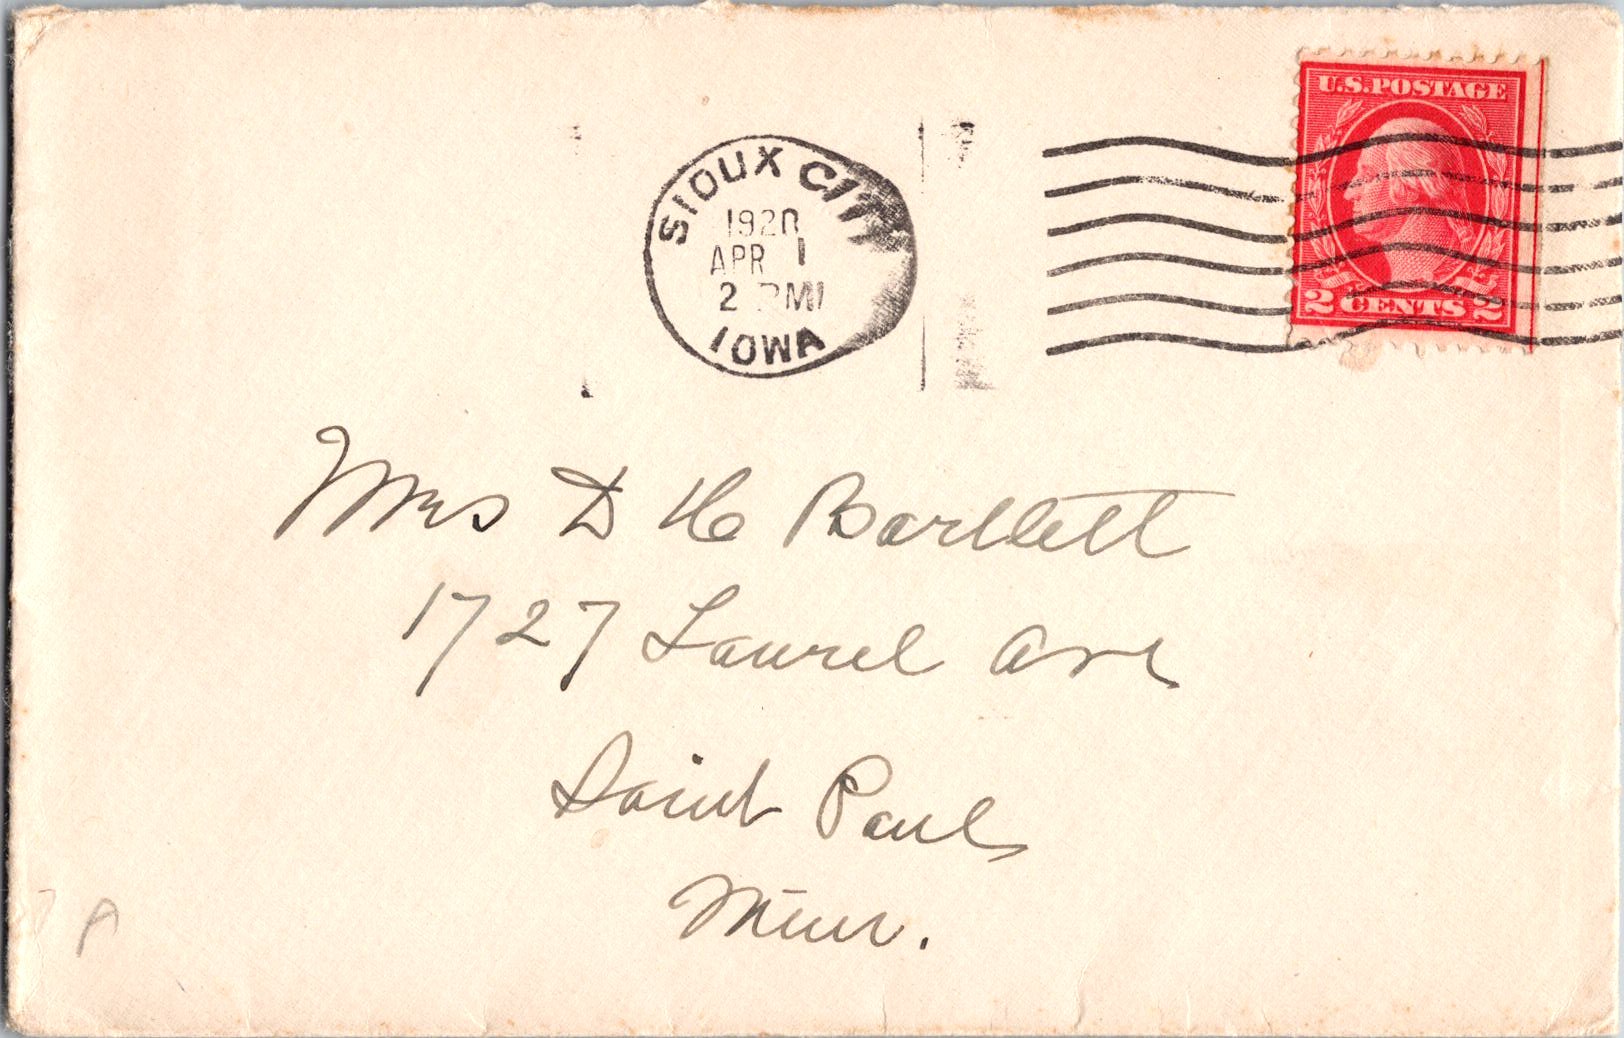 U.S. POSTAGE
SIOUX CITY
1920
APR 1
2 PM
IOWA
2 CENTS 2
Mrs D H Bartlett
1727 Laurel Ave
Saint Paul
Minn.